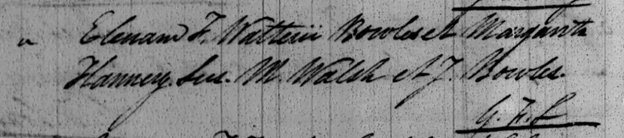 Elenam F. Walterii Bowles et Margaritæ
Flannery. Sus. M. Walsh et J. Bowles.
G. H. L